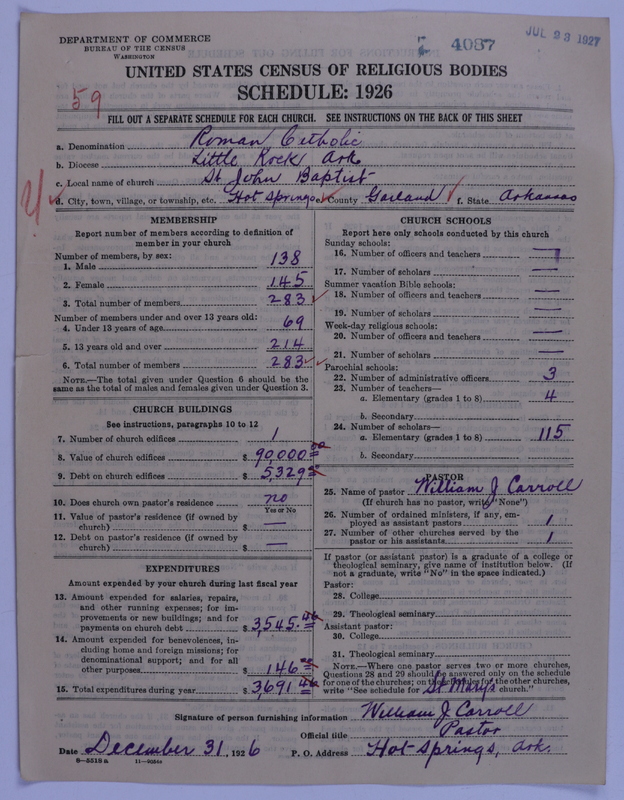 DEPARTMENT OF COMMERCE
BUREAU OF THE CENSUS
WASHINGTON
4087
JUL 23 1927
UNITED STATES CENSUS OF RELIGIOUS BODIES
SCHEDULE: 1926
59
FILL OUT A SEPARATE SCHEDULE FOR EACH CHURCH. SEE INSTRUCTIONS ON THE BACK OF THIS SHEET
a. Denomination Roman Catholic
b. Diocese Little Rock Ark
c. Local name of church St John Baptist
d. City, town, village, or township, etc. Hot Springs e. County Garland f. State Arkansas
MEMBERSHIP
Report number of members according to definition of
member in your church
Number of members, by sex:
1. Male 138
2. Female 145
3. Total number of members 283
Number of members under and over 13 years old:
4. Under 13 years of age 69
5. 13 years old and over 214
6. Total number of members 283
NOTE.—The total given under Question 6 should be the
same as the total of males and females given under Question 3.
CHURCH BUILDINGS
See instructions, paragraphs 10 to 12
7. Number of church edifices 1
8. Value of church edifices $ 90,000 00
9. Debt on church edifices $ 5,329
10. Does church own pastor's residence no
Yes or No
11. Value of pastor's residence (if owned by
church) $ —
12. Debt on pastor's residence (if owned by
church) $ —
EXPENDITURES
Amount expended by your church during last fiscal year
13. Amount expended for salaries, repairs,
and other running expenses; for im-
provements or new buildings; and for
payments on church debt $ 3,545.46
14. Amount expended for benevolences, in-
cluding home and foreign missions; for
denominational support; and for all
other purposes $ 146
15. Total expenditures during year $ 3,691 46
CHURCH SCHOOLS
Report here only schools conducted by this church
Sunday schools:
16. Number of officers and teachers —
17. Number of scholars —
Summer vacation Bible schools:
18. Number of officers and teachers —
19. Number of scholars —
Week-day religious schools:
20. Number of officers and teachers —
21. Number of scholars —
Parochial schools:
22. Number of administrative officers 3
23. Number of teachers—
a. Elementary (grades 1 to 8) 4
b. Secondary
24. Number of scholars—
a. Elementary (grades 1 to 8) 115
b. Secondary
PASTOR
25. Name of pastor William J Carroll
(If church has no pastor, write "None")
26. Number of ordained ministers, if any, em-
ployed as assistant pastors 1
27. Number of other churches served by the
pastor or his assistants 1
If pastor (or assistant pastor) is a graduate of a college or
theological seminary, give name of institution below. (If
not a graduate, write "No" in the space indicated.)
Pastor:
28. College
29. Theological seminary
Assistant pastor:
30. College
31. Theological seminary
NOTE.—Where one pastor serves two or more churches,
Questions 28 and 29 should be answered only on the schedule
for one of the churches; on the schedules for the other churches,
write "See schedule for St Mary's church."
Signature of person furnishing information William J Carroll
Official title Pastor
Date December 31, 1926 P. O. Address Hot Springs, Ark.
8—5518 a